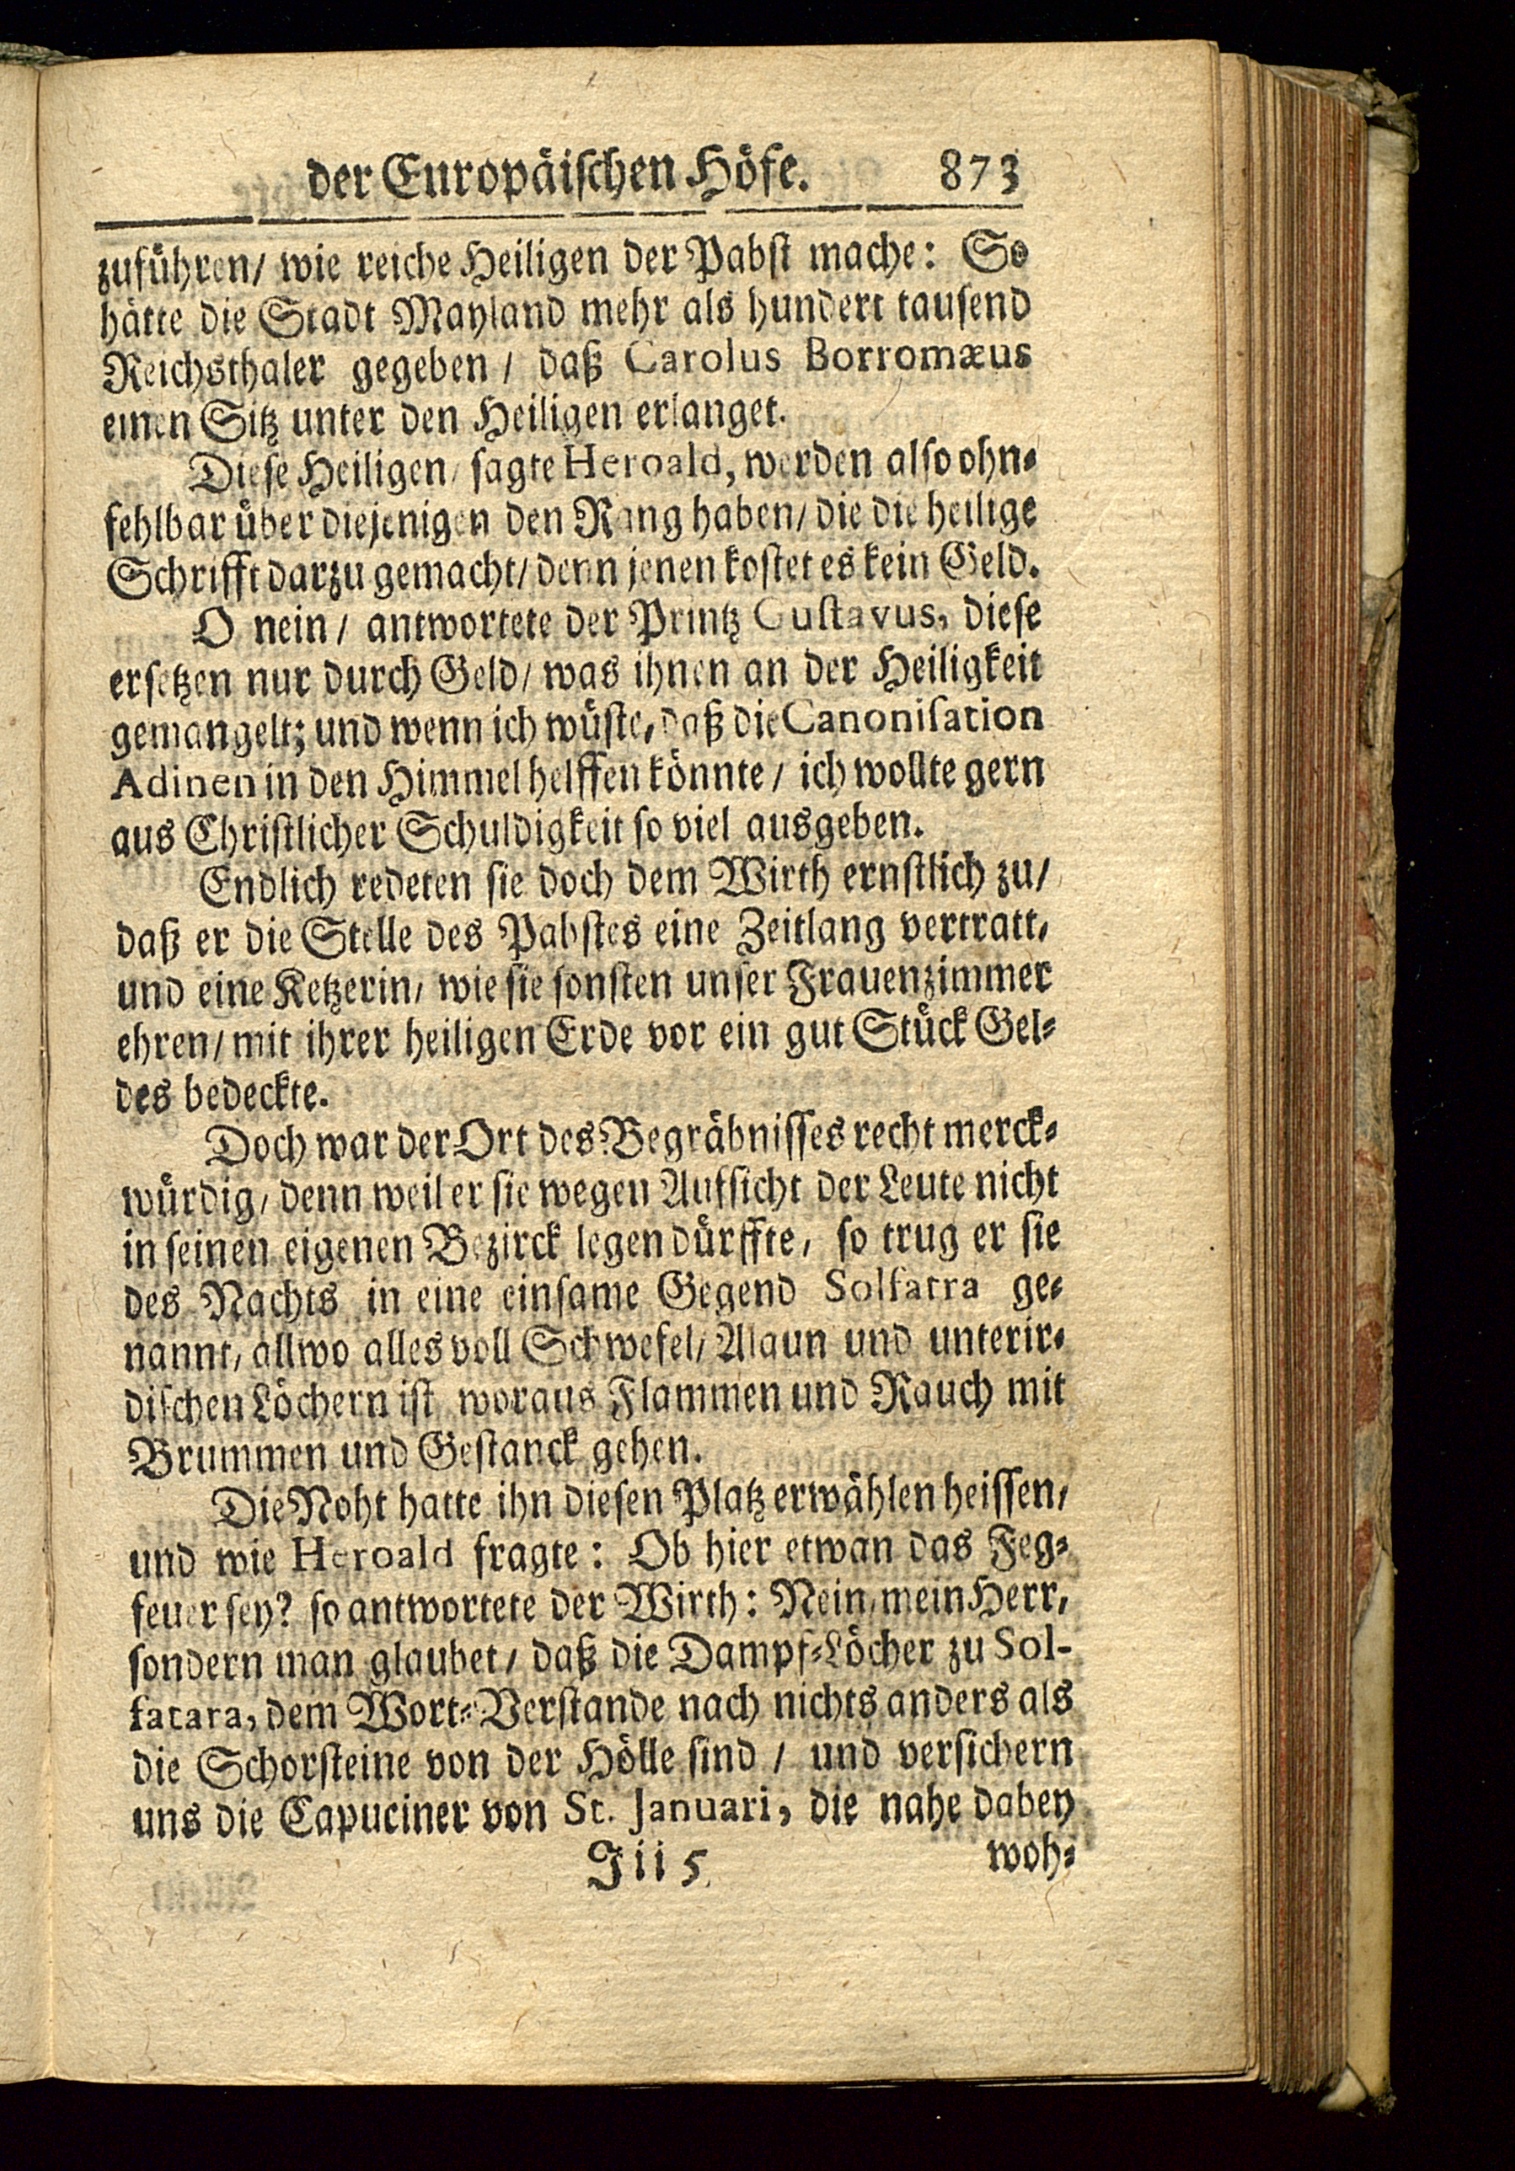 der Europäischen Höfe. 873
zuführen/ wie reiche Heiligen der Pabst mache: So
hätte die Stadt Mayland mehr als hundert tausend
Reichsthaler gegeben/ daß Carolus Borromæus
einen Sitz unter den Heiligen erlanget.
Diese Heiligen/ sagte Heroald, werden also ohn-
fehlbar über diejenigen den Rang haben/ die die heilige
Schrifft darzu gemacht/ denn jenen kostet es kein Geld.
O nein/ antwortete der Printz Gustavus, diese
ersetzen nur durch Geld/ was ihnen an der Heiligkeit
gemangelt; und wenn ich wüste, daß die Canonisation
Adinen in den Himmel helffen könnte/ ich wollte gern
aus Christlicher Schuldigkeit so viel ausgeben.
Endlich redeten sie doch dem Wirth ernstlich zu/
daß er die Stelle des Pabstes eine Zeitlang vertratt,
und eine Ketzerin/ wie sie sonsten unser Frauenzimmer
ehren/ mit ihrer heiligen Erde vor ein gut Stück Gel-
des bedeckte.
Doch war der Ort des Begräbnisses recht merck-
würdig/ denn weil er sie wegen Aufsicht der Leute nicht
in seinen eigenen Bezirck legen dürffte, so trug er sie
des Nachts in eine einsame Gegend Solfatra ge-
nannt/ allwo alles voll Schwefel/ Alaun und unterir-
dischen Löchern ist woraus Flammen und Rauch mit
Brummen und Gestanck gehen.
Die Noht hatte ihn diesen Platz erwählen heissen/
und wie Heroald fragte: Ob hier etwan das Feg-
feuer sey? so antwortete der Wirth: Nein/ mein Herr,
sondern man glaubet/ daß die Dampf-Löcher zu Sol-
fatara, dem Wort-Verstande nach nichts anders als
die Schorsteine von der Hölle sind/ und versichern
uns die Capuciner von St. Januari, die nahe dabey
Jii 5 woh-